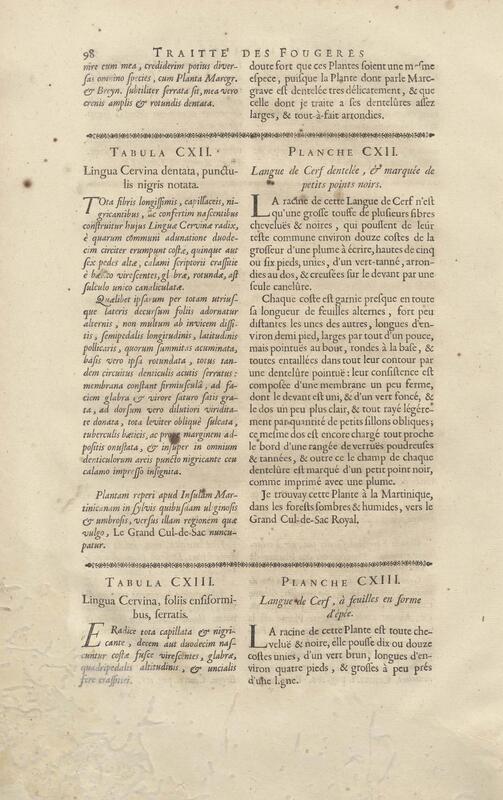 98 TRAITTE' DES FOUGERES
nire cum mea, crediderim potius diver-
sas omnino species, cum Planta Marcgr.
& Breyn. subtiliter serrata sit, mea vero
crenis amplis & rotundis dentata.
TABULA CXII.
Lingua Cervina dentata, punctu-
lis nigris notata.
TOta fibris longissimis, capillaceis, ni-
gricantibus, ac confertim nascentibus
construitur hujus Linguæ Cervinæ radix,
è quarum communi adunatione duode-
cim circiter erumpunt costæ, quinque aut
sex pedes altæ, calami scriptorii crassitie
è bætico virescentes, glabræ, rotundæ, ast
sulculo unico canaliculatæ.
Quælibet ipsarum per totam utrius-
que lateris decursum foliis adornatur
alternis, non multum ab invicem dissi-
tis, semipedalis longitudinis, latitudinis
pollicaris, quorum summitas acuminata,
basis vero ipsa rotundata, totus tan-
dem circuitus denticulis acutis serratus:
membrana constant firmiusculâ, ad fa-
ciem glabra & virore saturo satis gra-
ta, ad dorsum vero dilutiori viridita-
te donata, tota leviter obliquè sulcata,
tuberculis bæticis, ac prope marginem ad-
positis onustata, & insuper in omnium
denticulorum areis puncto nigricante ceu
calamo impresso insignita.
Plantam reperi apud Insulam Mar-
tinicanam in sylvis quibusdam uliginosis
& umbrosis, versus illam regionem quæ
vulgo, Le Grand Cul-de-Sac nuncu-
patur.
TABULA CXIII.
Lingua Cervina, foliis ensiformi-
bus, serratis.
E Radice tota capillata & nigri-
cante, decem aut duodecim nas-
cuntur costæ fusce virescentes, glabræ,
quadripedalis altitudinis, & uncialis
fere crassitiei.
doute fort que ces Plantes soient une mesme
espece, puisque la Plante dont parle Marc-
grave est dentelée tres délicatement, & que
celle dont je traite a ses dentelûres assez
larges, & tout-à-fait arrondies.
PLANCHE CXII.
Langue de Cerf dentelée, & marquée de
petits points noirs.
LA racine de cette Langue de Cerf n'est
qu'une grosse touffe de plusieurs fibres
chevelües & noires, qui poussent de leur
teste commune environ douze costes de la
grosseur d'une plume à écrire, hautes de cinq
ou six pieds, unies, d'un vert-tanné, arron-
dies au dos, & creusées sur le devant par une
seule canelûre.
Chaque coste est garnie presque en toute
sa longueur de feuilles alternes, fort peu
distantes les unes des autres, longues d'en-
viron demi pied, larges par tout d'un pouce,
mais pointuës au bout, rondes à la base, &
toutes entaillées dans tout leur contour par
une dentelûre pointuë: leur consistence est
composée d'une membrane un peu ferme,
dont le devant est uni, & d'un vert foncé, &
le dos un peu plus clair, & tout rayé légére-
ment par quantité de petits sillons obliques;
ce mesme dos est encore chargé tout proche
le bord d'une rangée de verruës poudreuses
& tannées, & outre ce le champ de chaque
dentelûre est marqué d'un petit point noir,
comme imprimé avec une plume.
Je trouvay cette Plante à la Martinique,
dans les forests sombres & humides, vers le
Grand Cul-de-Sac Royal.
PLANCHE CXIII.
Langue de Cerf, à feuilles en forme
d'épée.
LA racine de cette Plante est toute che-
veluë & noire, elle pousse dix ou douze
costes unies, d'un vert brun, longues d'en-
viron quatre pieds, & grosses à peu prés
d'une ligne.